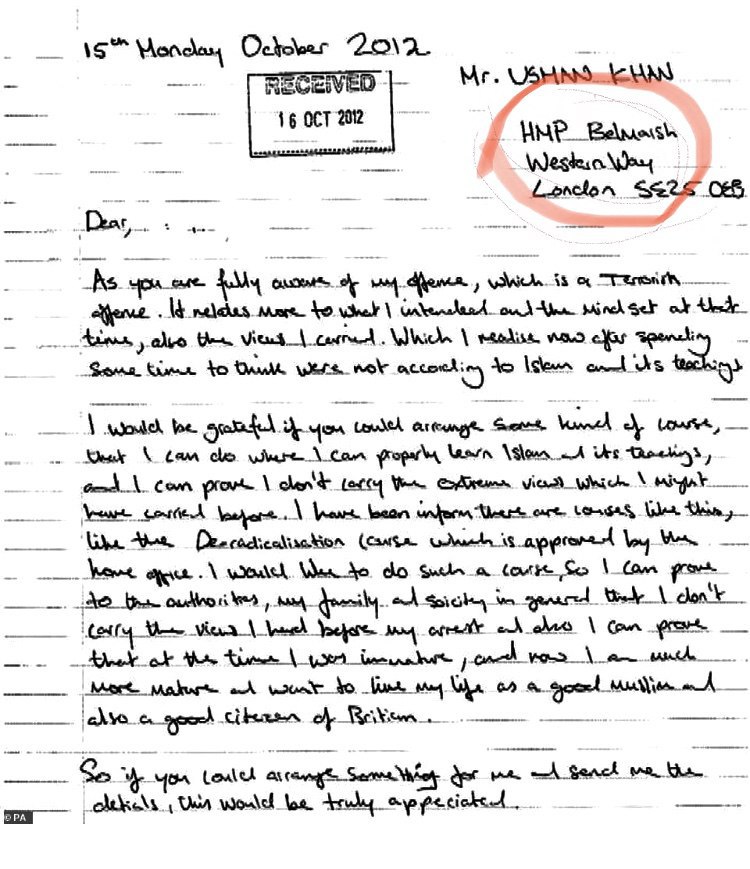 15th Monday October 2012
RECEIVED
16 OCT 2012
Mr. USMAN KHAN
HMP Belmarsh
Western Way
London SE25 0EB
Dear,
As you are fully aware of my offence, which is a Terrorism
offence. It relates more to what I intended and the mind set at that
time, also the views I carried. Which I realise now after spending
some time to think were not according to Islam and its teachings
I would be grateful if you could arrange some kind of course,
that I can do where I can properly learn Islam and its teachings,
and I can prove I don't carry the extreme views which I might
have carried before. I have been inform there are courses like this,
like the Deradicalisation course which is approved by the
home office. I would like to do such a course, so I can prove
to the authorities, my family and soicity in general that I don't
carry the views I had before my arrest and also I can prove
that at the time I was immature, and now I am much
more mature and want to live my life as a good muslim and
also a good citizen of Britian.
So if you could arrange something for me and send me the
detials, this would be truly appeciated.
© PA